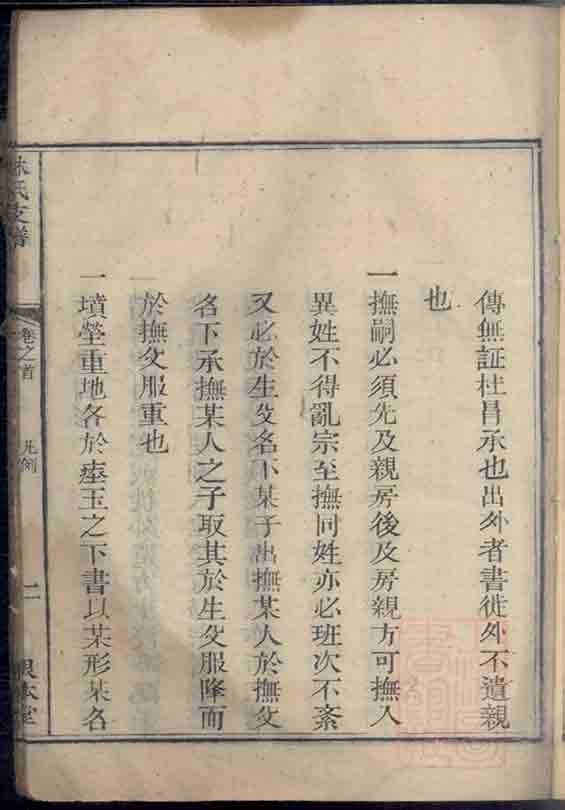 傳無証杜昌承也出外者書徙外不遺親
也
一撫嗣必須先及親房後及房親方可撫入
異姓不得亂宗至撫同姓亦必班次不紊
又必於生父名下某子出撫某人於撫父
名下承撫某人之子取其於生父服降而
於撫父服重也
一墳塋重地各於瘞玉之下書以某形某名
林氏支譜
卷之首
凡例
二
根本堂